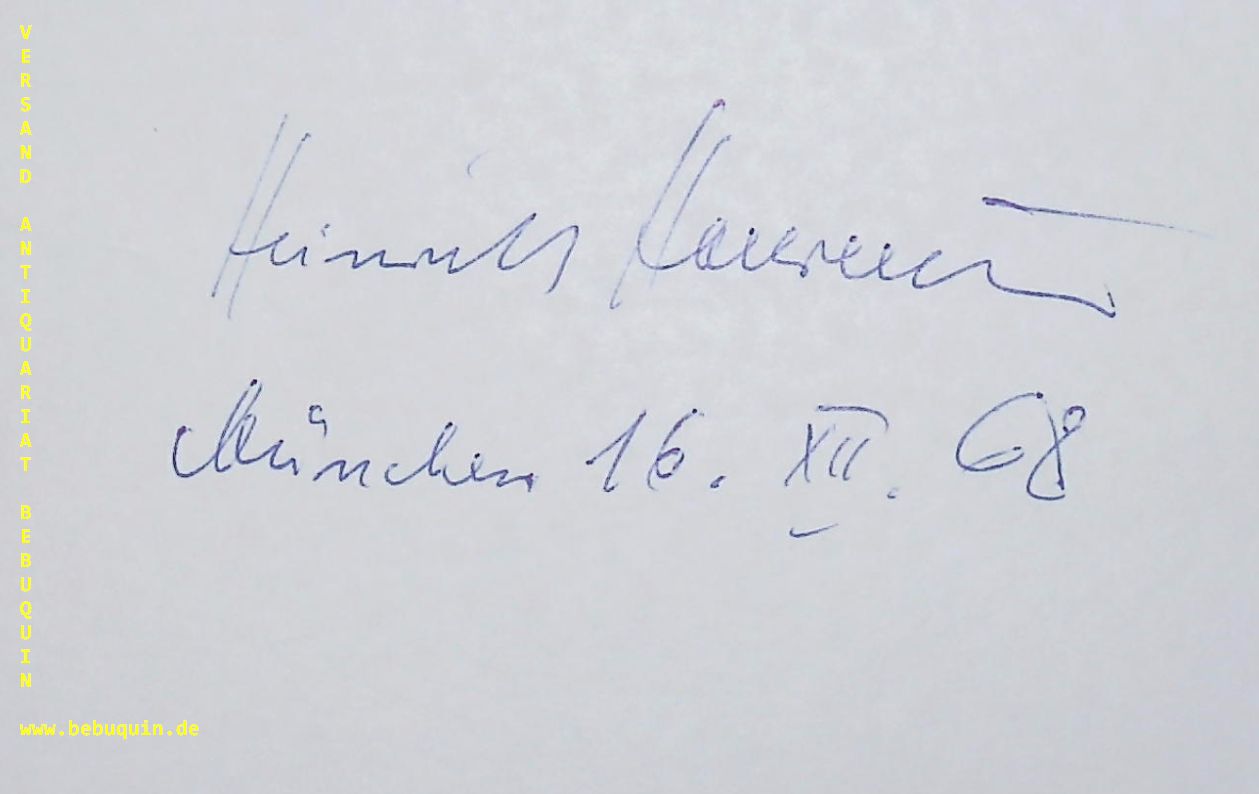 VERSAND ANTIQUARIAT BEBUQUIN
www.bebuquin.de
Heinrich
München 16. XII. 68